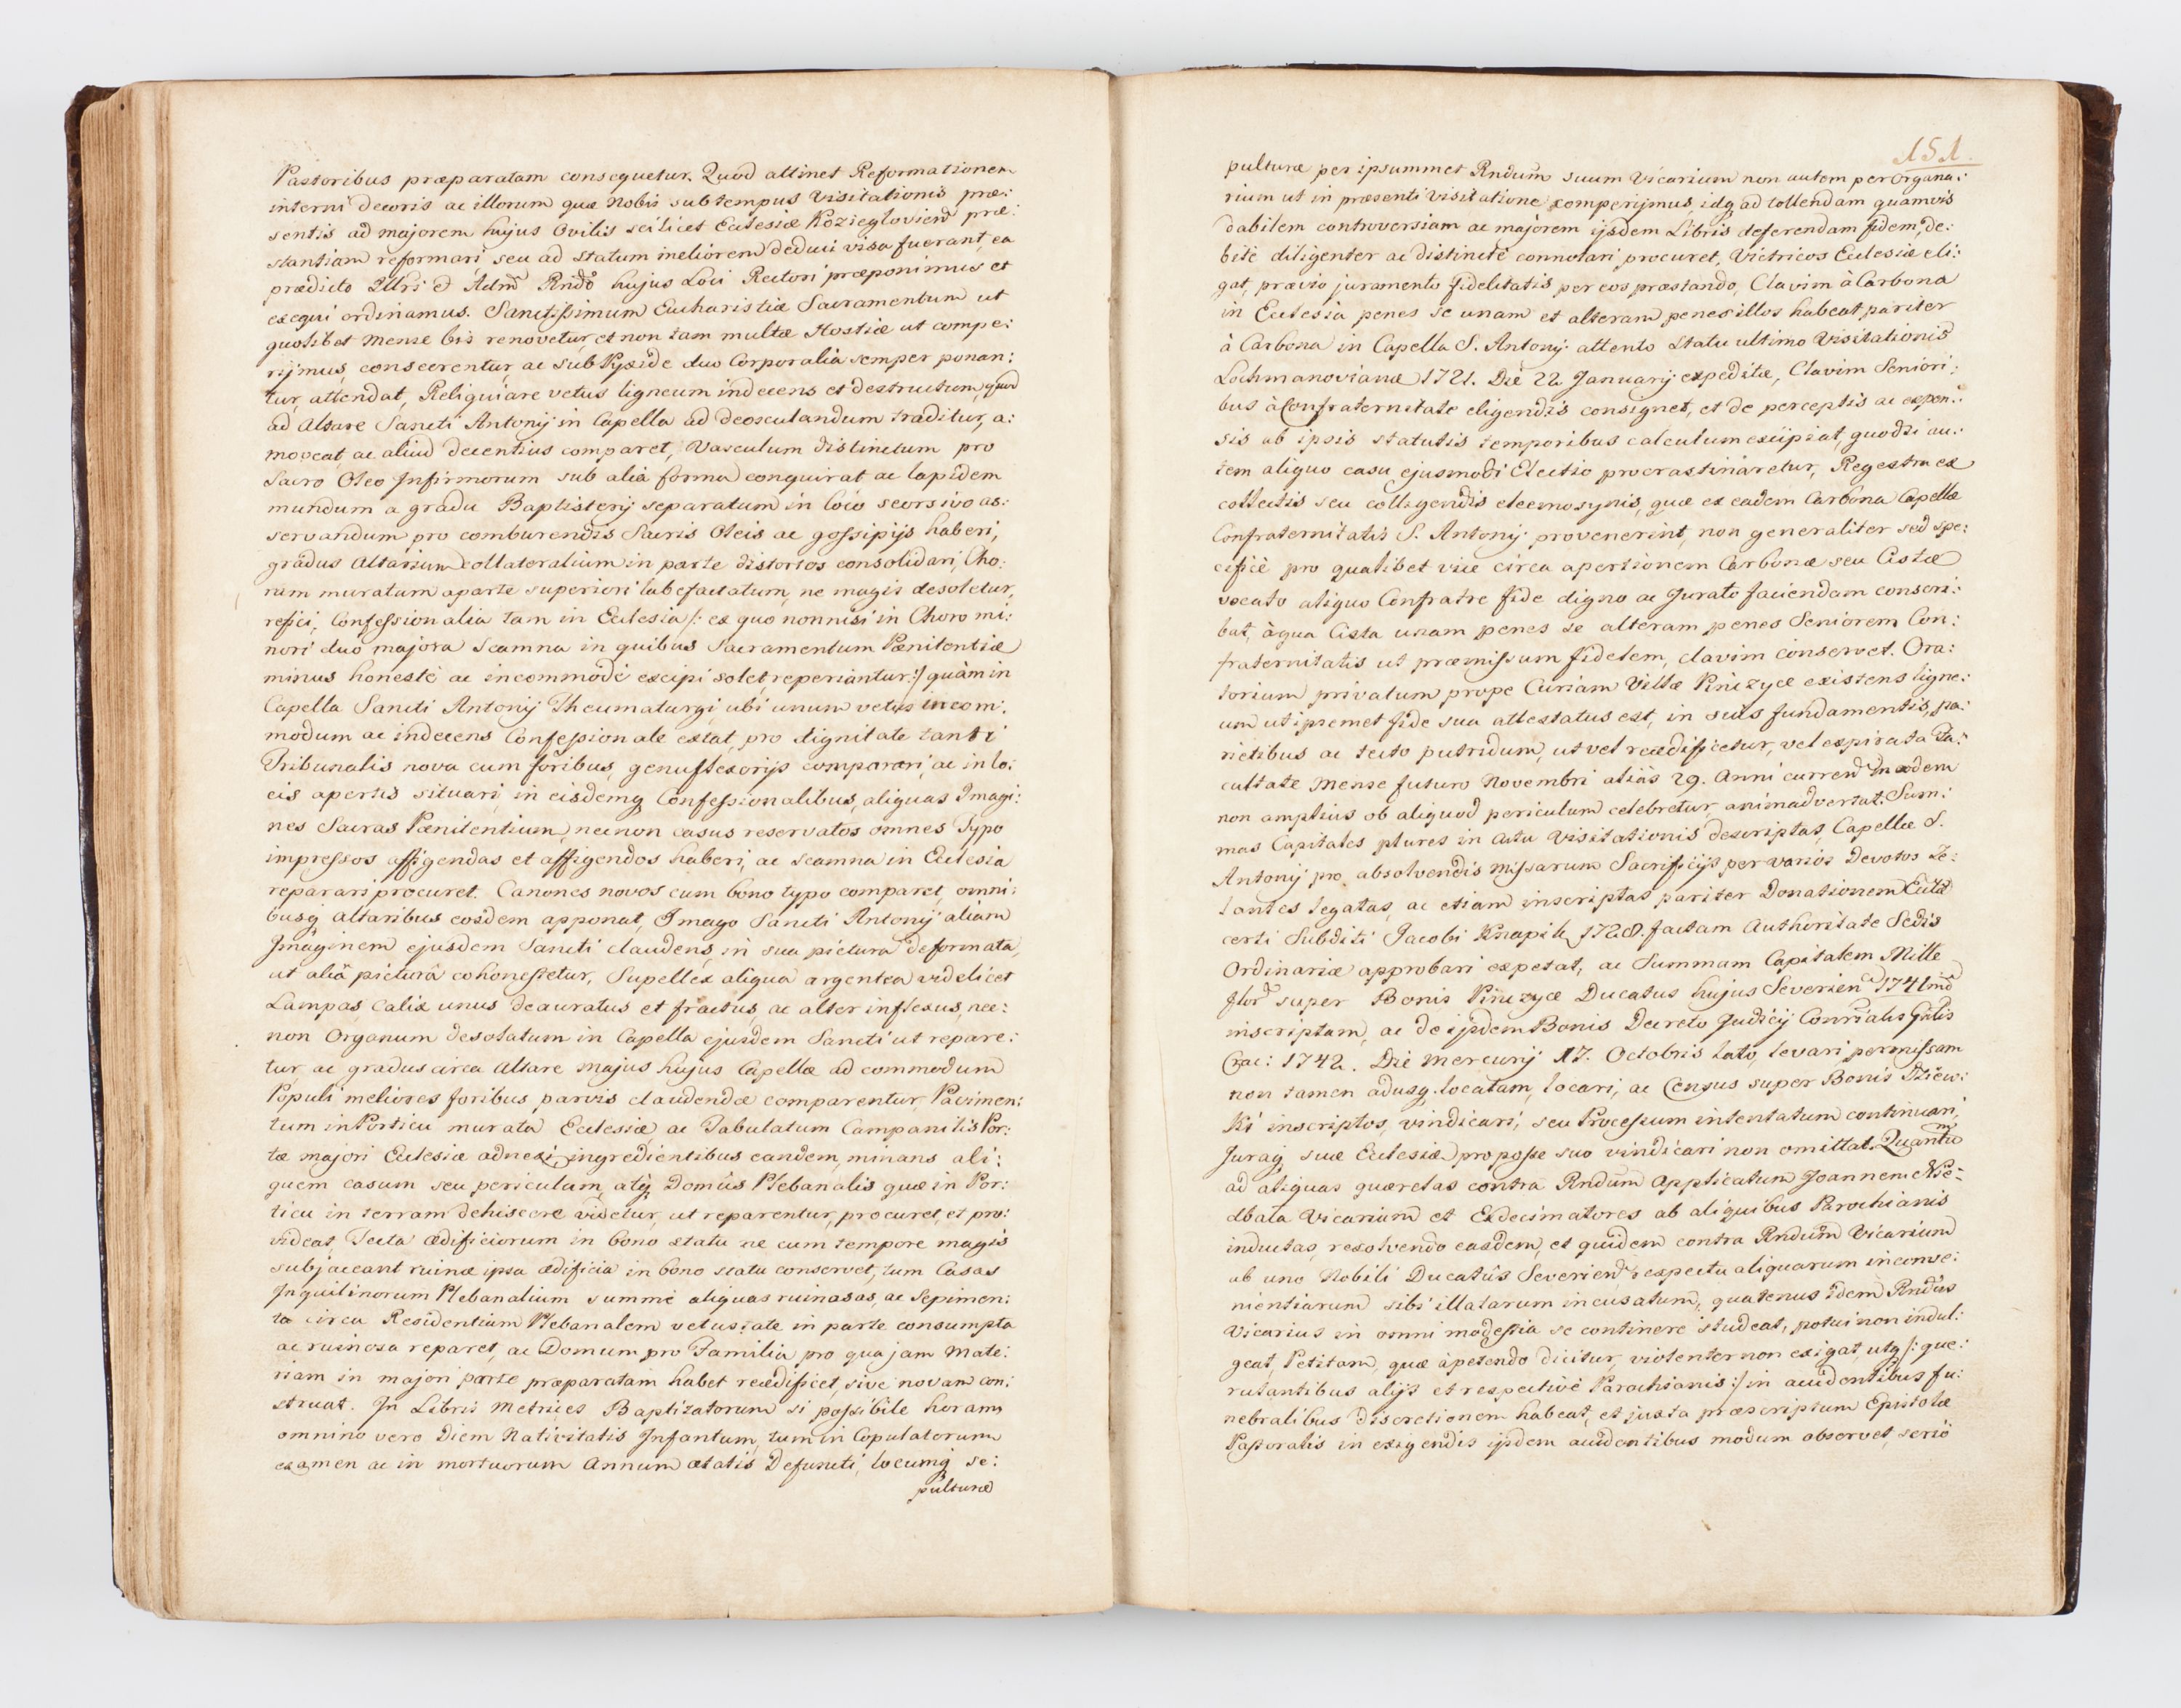 Pastoribus præparatam consequetur. Quod attinet Reformationem
interni decoris ac illorum quæ Nobis sub tempus Visitationis præ:
sentis ad majorem hujus Ovilis scilicet Ecclesiæ Kozieglovien̄ præ:
stantiam reformari seu ad statum meliorem deduci visa fuerant, ea
prædicto Illri et Adm̄ Rndō hujus Loci Rectori præponimus et
exequi ordinamus. Sanctissimum Eucharistiæ Sacramentum ut
quolibet Mense bis renovetur, et non tam multæ Hostiæ ut compe:
rijmus, consecrentur, ac sub Pyxide duo Corporalia semper ponan:
tur, attendat, Reliquiare vetus ligneum indecens et destructum, quod
ad Altare Sancti Antonij in Capella ad deosculandum traditur, a:
moveat, ac aliud decentius comparet, Vasculum distinctum pro
Sacro Oleo Infirmorum sub alia forma conquirat ac lapidem
mundum a gradu Baptisterij separatum in loco seorsivo as:
servandum pro comburendis Sacris Oleis ac gossipijs haberi,
gradus Altarium collateralium in parte distortos consolidari, Cho:
rum muratum a parte superiori labefactatum, ne magis desoletur,
refici, Confessionalia tam in Ecclesia /: ex quo nonnisi in Choro mi:
nori duo majora Scamna in quibus Sacramentum Pænitentiæ
minus honestè ac incommodè excipi solet, reperiantur :/ quàm in
Capella Sancti Antonij Theumaturgi, ubi unum vetus incom:
modum ac indecens Confessionale extat, pro dignitate tanti
Tribunalis nova cum foribus, genuflexorijs comparari, ac in lo:
cis apertis situari, in eisdemq Confessionalibus, aliquas Imagi:
nes Sacras Pænitentium, necnon casus reservatos omnes Typo
impressos affigendas et affigendos haberi, ac scamna in Ecclesia
reparari procuret. Canones novos cum bono typo comparet, omni:
busq Altaribus eosdem apponat, Imago Sancti Antonij aliam
Imaginem ejusdem Sancti claudens, in sua pictura deformata,
ut aliâ picturâ cohonestetur, Supellex aliqua argentea videlicet
Lampas, Calix unus deauratus et fractus, ac alter inflexus, nec:
non Organum desolatum in Capella ejusdem Sancti ut repare:
tur, ac gradus circa Altare majus hujus Capellæ ad commodum
Populi meliores foribus parvis claudendæ comparentur, Pavimen:
tum in Porticu murata Ecclesiæ, ac Tabulatum Campanilis Por:
tæ majori Ecclesiæ adnexi, ingredientibus eandem, minans ali:
quem casum seu periculum, atq Domûs Plebanalis quæ in Por:
ticu in terram dehiscere videtur, ut reparentur, procuret, et pro:
videat, Tecta ædificiorum in bono statu ne cum tempore magis
subjaceant ruinæ ipsa ædificia in bono statu conservet, tum Casas
Inquilinorum Plebanalium summè aliquas ruinosas, ac Sepimen:
ta circa Residentiam Plebanalem vetustate in parte consumpta
ac ruinosa reparet, ac Domum pro Familia pro qua jam Mate:
riam in majori parte præparatam habet reædificet, sive novam con:
struat. In Libris Metrices Baptizatorum si possibile horam,
omnino vero Diem Nativitatis Infantum, tum in Copulatorum
examen ac in mortuorum Annum ætatis Defuncti, locumq se:
pulturæ
151.
pulturæ per ipsummet Rndum̄ suum Vicarium non autem per Organa:
rium ut in præsenti Visitatione comperijmus, idq ad tollendam quamvis
dabilem controversiam ac majorem ijsdem Libris deferendam fidem, de:
bite diligenter ac distinctè connotari procuret, Victricos Ecclesiæ eli:
gat, prævio juramento fidelitatis per eos præstando, Clavim à Carbona
in Ecclesia penes se unam et alteram penes illos habeat pariter
à Carbona in Capella S. Antonij attento Statu ultimo Visitationis
Lochmanovianæ 1721. Die 22 Januarij expeditæ, Clavim Seniori:
bus à Confraternitate eligendis consignet, et de perceptis ac expen:
sis ab ipsis statutis temporibus calculum excipiat, quodsi au:
tem aliquo casu ejusmodi Electio procrastinaretur, Regestra ex
collectis seu colligendis eleemosynis, quæ ex eadem Carbona Capellæ
Confraternitatis S. Antonij provenerint, non generaliter sed spe:
cificè pro qualibet vice circa apertionem Carbonæ seu Cistæ
vocato aliquo Confratre fide digno ac Jurato faciendam conscri:
bat, à qua Cista unam penes se alteram penes Seniorem Con:
fraternitatis ut præmissum fidelem, clavim conservet. Ora:
torium privatum prope Curiam Villæ Pińczyce existens ligne:
um ut ipsemet fide sua attestatus est, in suis fundamentis, pa:
rietibus ac tecto putridum, ut vel reædificetur, vel expirata Fa:
cultate Mense futuro Novembri aliàs 29. Anni curren̄ in eodem
non amplius ob aliquod periculum celebretur, animadvertat. Sum:
mas Capitales plures in Actu Visitationis descriptas, Capellæ S.
Antonij pro absolvendis Missarum Sacrificijs per varios Devotos Ze:
lantes legatas, ac etiam inscriptas pariter Donationem Eccle
certi Subditi Jacobi Knapik 1728. factam Authoritate Sedis
Ordinariæ approbari expetat, ac Summam Capitalem Mille
flor̄ super Bonis Pińczyce Ducatus hujus Severien̄ 1741mō
inscriptam, ac de ijsdem Bonis Decreto Judicij Conrialis Gnlis
Crac: 1742. Die Mercurij 17. Octobris lato, levari permissam
non tamen adusq locatam, locari, ac Census super Bonis Dziew:
ki inscriptos, vindicari, seu Processum intentatum continuari,
Juraq suæ Ecclesiæ pro posse suo vindicari non omittat. Quantum
ad aliquas quærelas contra Rndum̄ Applicatum Joannem Nie:
dbala Vicarium et Exdecimatores ab aliquibus Parochianis
inductas, resolvendo easdem, et quidem contra Rndum̄ Vicarium
ab uno Nobili Ducatûs Severien̄ respectu aliquarum inconve:
nientiarum sibi illatarum incusatum, quatenus idem Rndūs
Vicarius in omni modestia se continere studeat, potui non indul:
geat, Petitam, quæ à petendo dicitur, violenter non exigat, utq /: que:
rulantibus alijs et respectivè Parochianis :/ in accidentibus fu:
nebralibus discretionem habeat, et juxta præscriptum Epistolæ
Pastoralis in exigendis ijsdem accidentibus modum observet, seriò